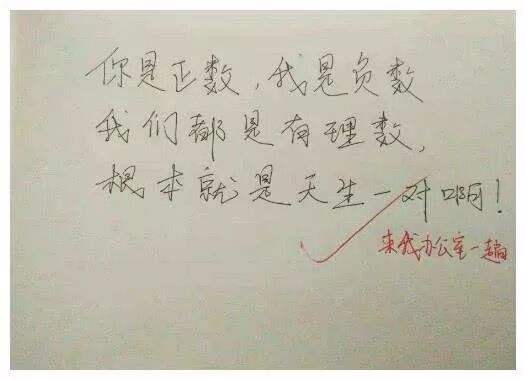 你是正数，我是负数
我们都是有理数，
根本就是天生一对啊！
来我办公室一趟